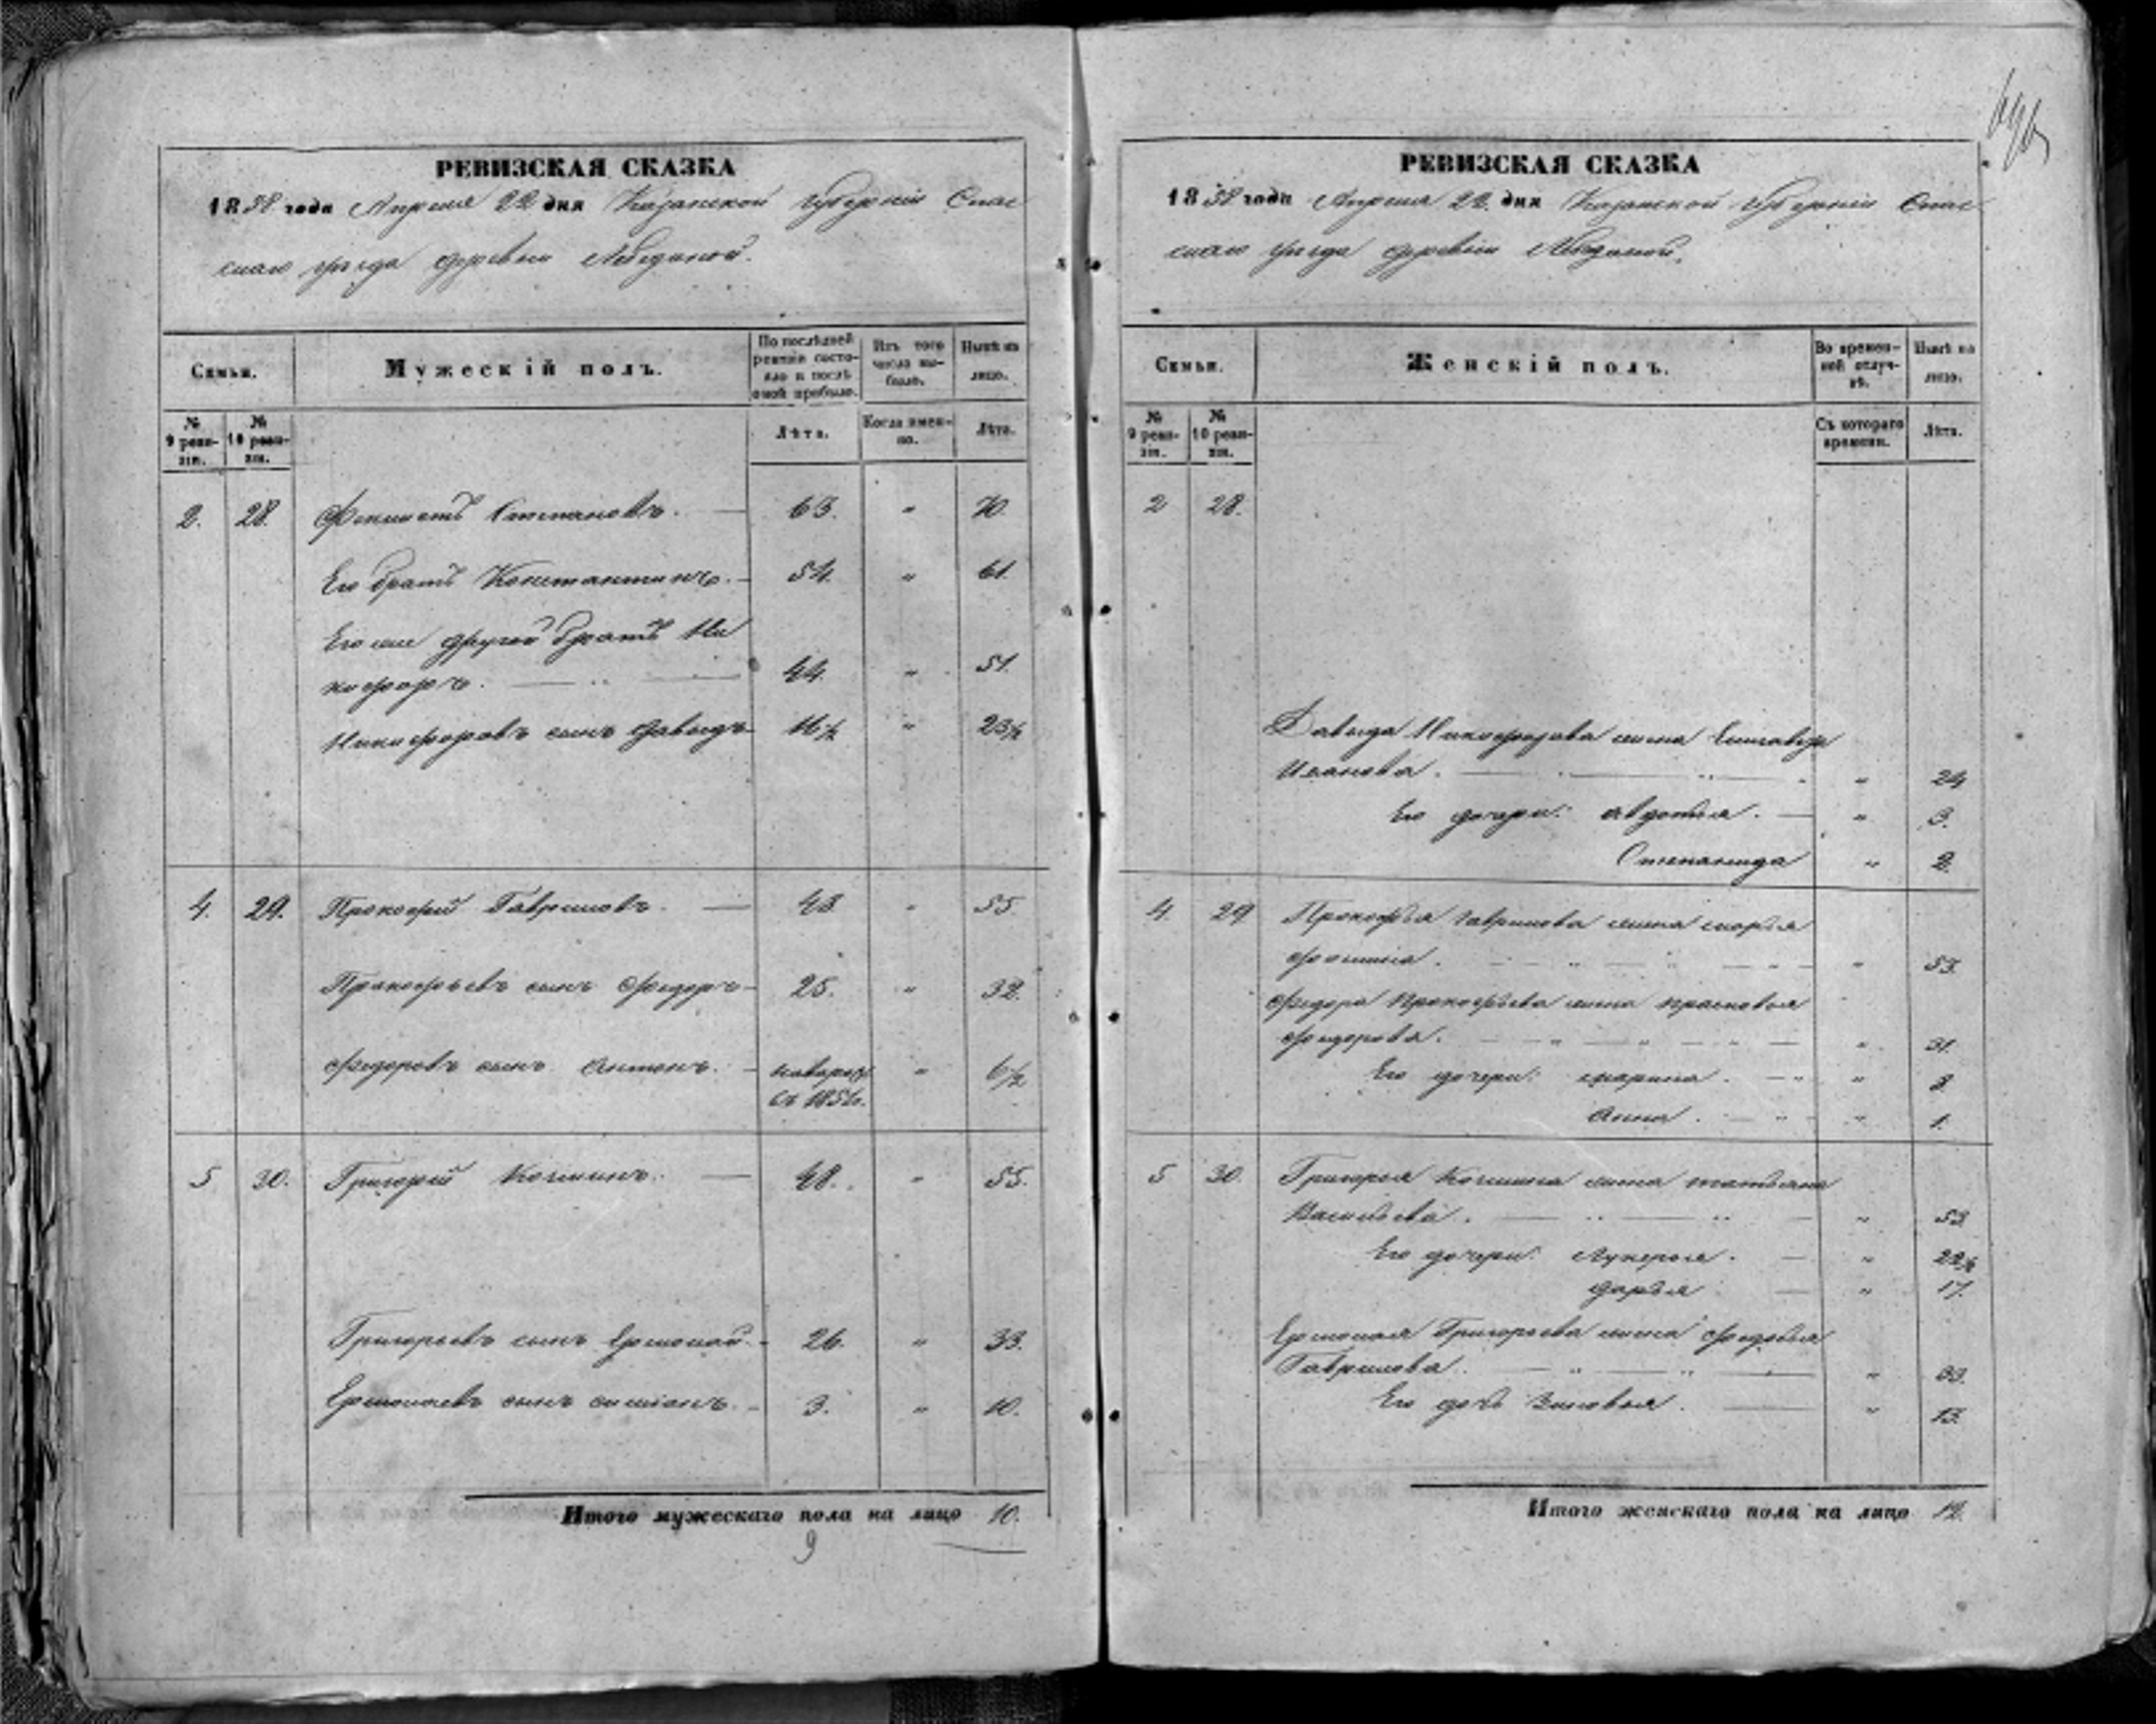 РЕВИЗСКАЯ СКАЗКА
1858 года Апреля 22 дня Казанской губернiи Спас
скаго уѣзда деревни Лебединой.
Семьи.
Мужескiй полъ.
По послѣдней ревизiи состояло и послѣ оной прибыло.
Изъ того числа выбыло.
Нынѣ на лицо.
№ 9 ревизiи.
№ 10 ревизiи.
Лѣта.
Когда именно.
Лѣта.
2. 28. Феклистъ Степановъ. — 63. " 70.
Его братъ Константинъ. — 54. " 61.
Его же другой братъ Ни
кифоръ. — 44. " 51.
Никифоровъ сынъ Давыдъ 16½ " 23½
4. 29. Прокофiй Гавриловъ. — 48 " 55.
Прокофьевъ сынъ Федоръ — 25. " 32.
Федоровъ сынъ Антонъ. — новорож " 6½
съ 1851г.
5 30. Григорiй Козминъ. — 48. " 55.
Григорьевъ сынъ Ермолай — 26. " 33.
Ермолаевъ сынъ Симiонъ. — 3. " 10.
Итого мужескаго пола на лицо 10.
9
РЕВИЗСКАЯ СКАЗКА
1858 года Апреля 22. дня Казанской губернiи Спас
скаго уѣзда деревни Лебединой.
Семьи.
Женскiй полъ.
Во временной отлучкѣ.
Нынѣ на лицо.
№ 9 ревизiи.
№ 10 ревизiи.
Съ котораго времени.
Лѣта.
2 28.
Давыда Никифорова жена Елизавета
Иванова. — " 24
Его дочери: Авдотья. — " 3.
Степанида " 2.
4. 29 Прокофья Гаврилова жена Марья
Фомина. — " 53.
Федора Прокофьева жена Прасковья
Федорова. — " 31.
Его дочери: Марина. — " 3.
Анна. — " 1.
5 30. Григорья Козмина жена Татьяна
Васильева. — " 53.
Его дочери: Лукерья. — " 22½
Дарья — " 17.
Ермолая Григорьева жена Федосья
Гаврилова. — " 33.
Его дочь Зиновья. — " 13.
Итого женскаго пола на лицо 12.